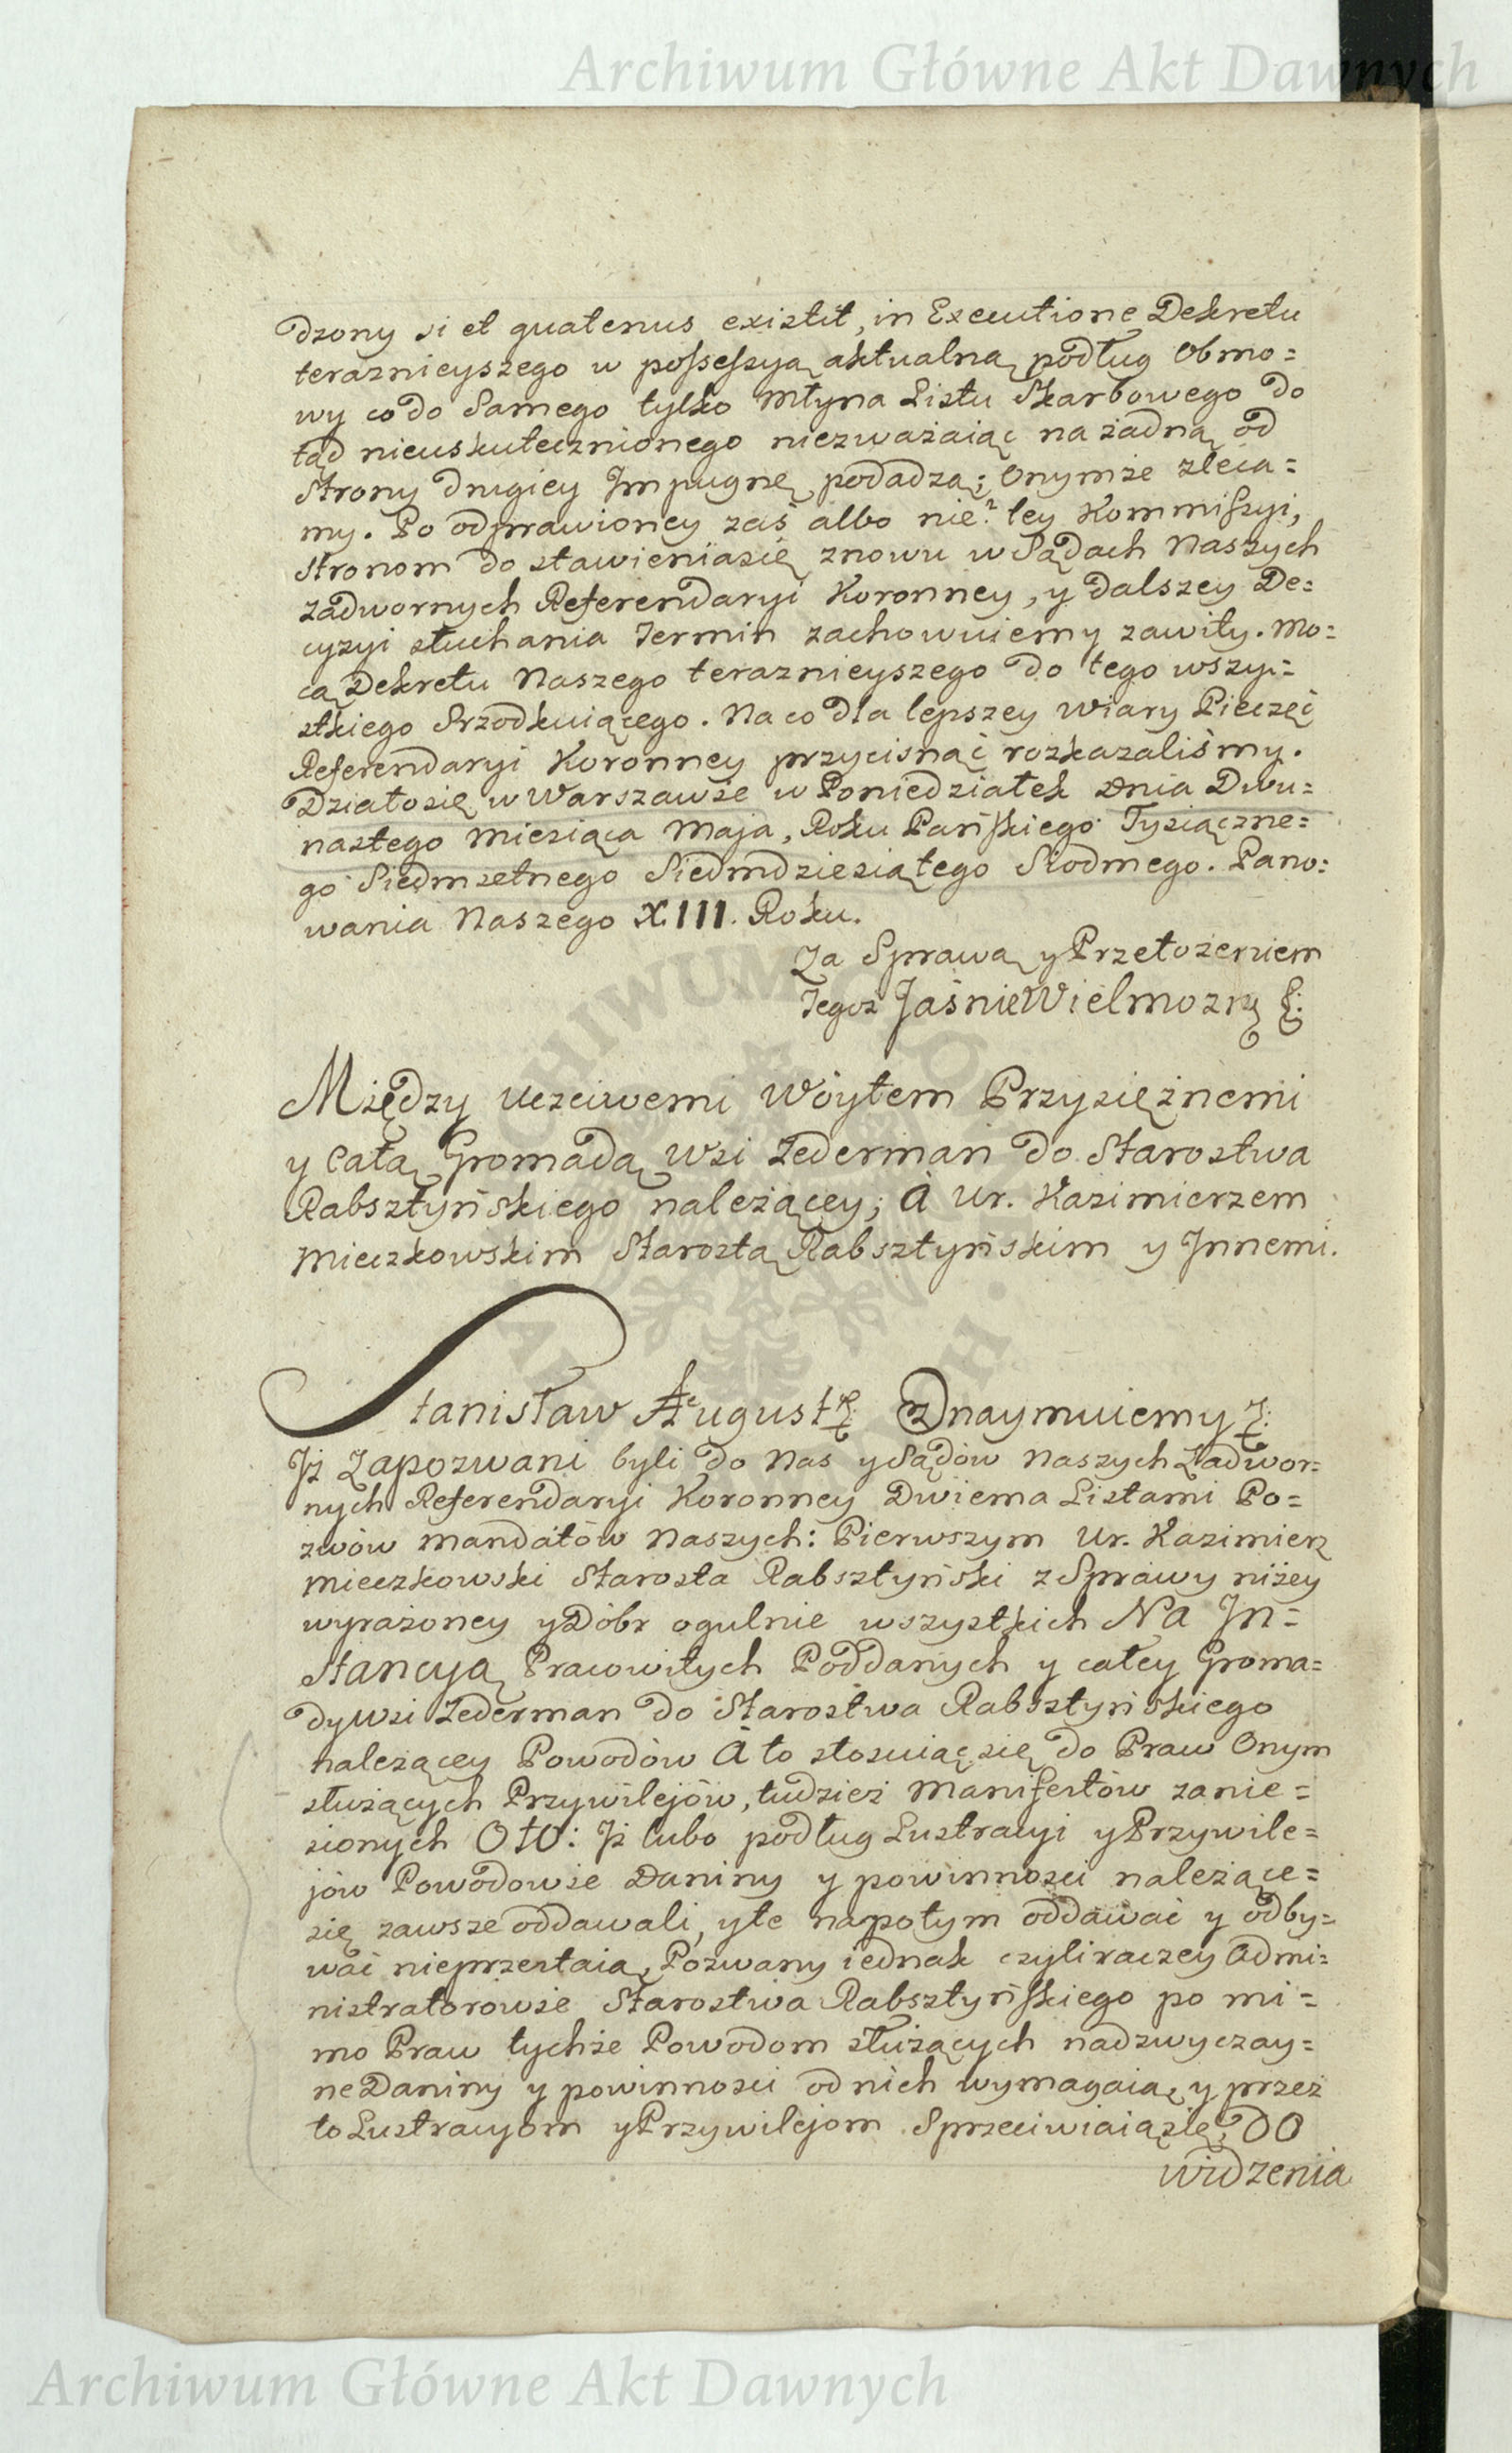 Archiwum Główne Akt Dawnych
dzony si et quatenus existit, in Executionę Dekretu
teraznieyszego w possessyą aktualną podług Obmo=
wy co do Samego tylko Młyna Listu Skarbowego do
tąd nieuskutecznionego niezważaiąc na żadną od
Strony drugiey Impugnę podadzą; Onymże zleca=
my. Po odprawioney zaś albo nie? tey Kommissyi,
stronom do stawieniasię znowu w Sądach Naszych
zadwornych Referendaryi Koronney, y dalszey De=
cyzyi słuchania Termin zachowuiemy zawity. Mo=
cą Dekretu Naszego teraznieyszego do tego wszy=
stkiego Srzodkuiącego. Na co dla lepszey Wiary Pieczęć
Referendaryi Koronney przycisnąć rozkazaliśmy.
Działosię w Warszawie w Poniedziałek Dnia Dwu=
nastego Miesiąca Maja, Roku Pańskiego Tysiączne=
go Siedmsetnego Siedmdziesiątego Siodmego. Pano=
wania Naszego XIII. Roku.
Za Sprawą y Przełożeniem
Tegoż JaśnieWielmożny &:
Między Uczciwemi Wóytem Przysiężnemi
y Całą Gromadą Wsi Zederman do Starostwa
Rabsztyńskiego należącey; A Ur. Kazimierzem
Mieczkowskim Starostą Rabsztyńskim y Innemi.
Stanisław August &: Oznaymuiemy &:
Iż Zapozwani byli do Nas y Sądów Naszych Zadwor=
nych Referendaryi Koronney Dwiema Listami Po=
zwów Mandatów Naszych: Pierwszym Ur. Kazimierz
Mieczkowski Starosta Rabsztyński z Sprawy niżey
wyrażoney y Dóbr ogulnie wszystkich Na In=
stancyą Pracowitych Poddanych y całey Groma=
dy wsi Zederman do Starostwa Rabsztyńskiego
należącey Powodów A to stosuiąc się do Praw Onym
służących Przywilejów, tudzież Manifestów zanie=
sionych Oto: Iż lubo podług Lustracyi y Przywile=
jów Powodowie Daniny y powinności należące=
się zawsze oddawali, y te napotym oddawać y odby=
wać nieprzestaią, Pozwany iednak czyli raczey Admi=
nistratorowie Starostwa Rabsztyńskiego po mi=
mo Praw tychże Powodom służących nadzwyczay=
ne Daniny y powinności od nich wymagaią, y przez
to Lustracyom y Przywilejom Sprzeciwiaiąsię, DO
widzenia
Archiwum Główne Akt Dawnych